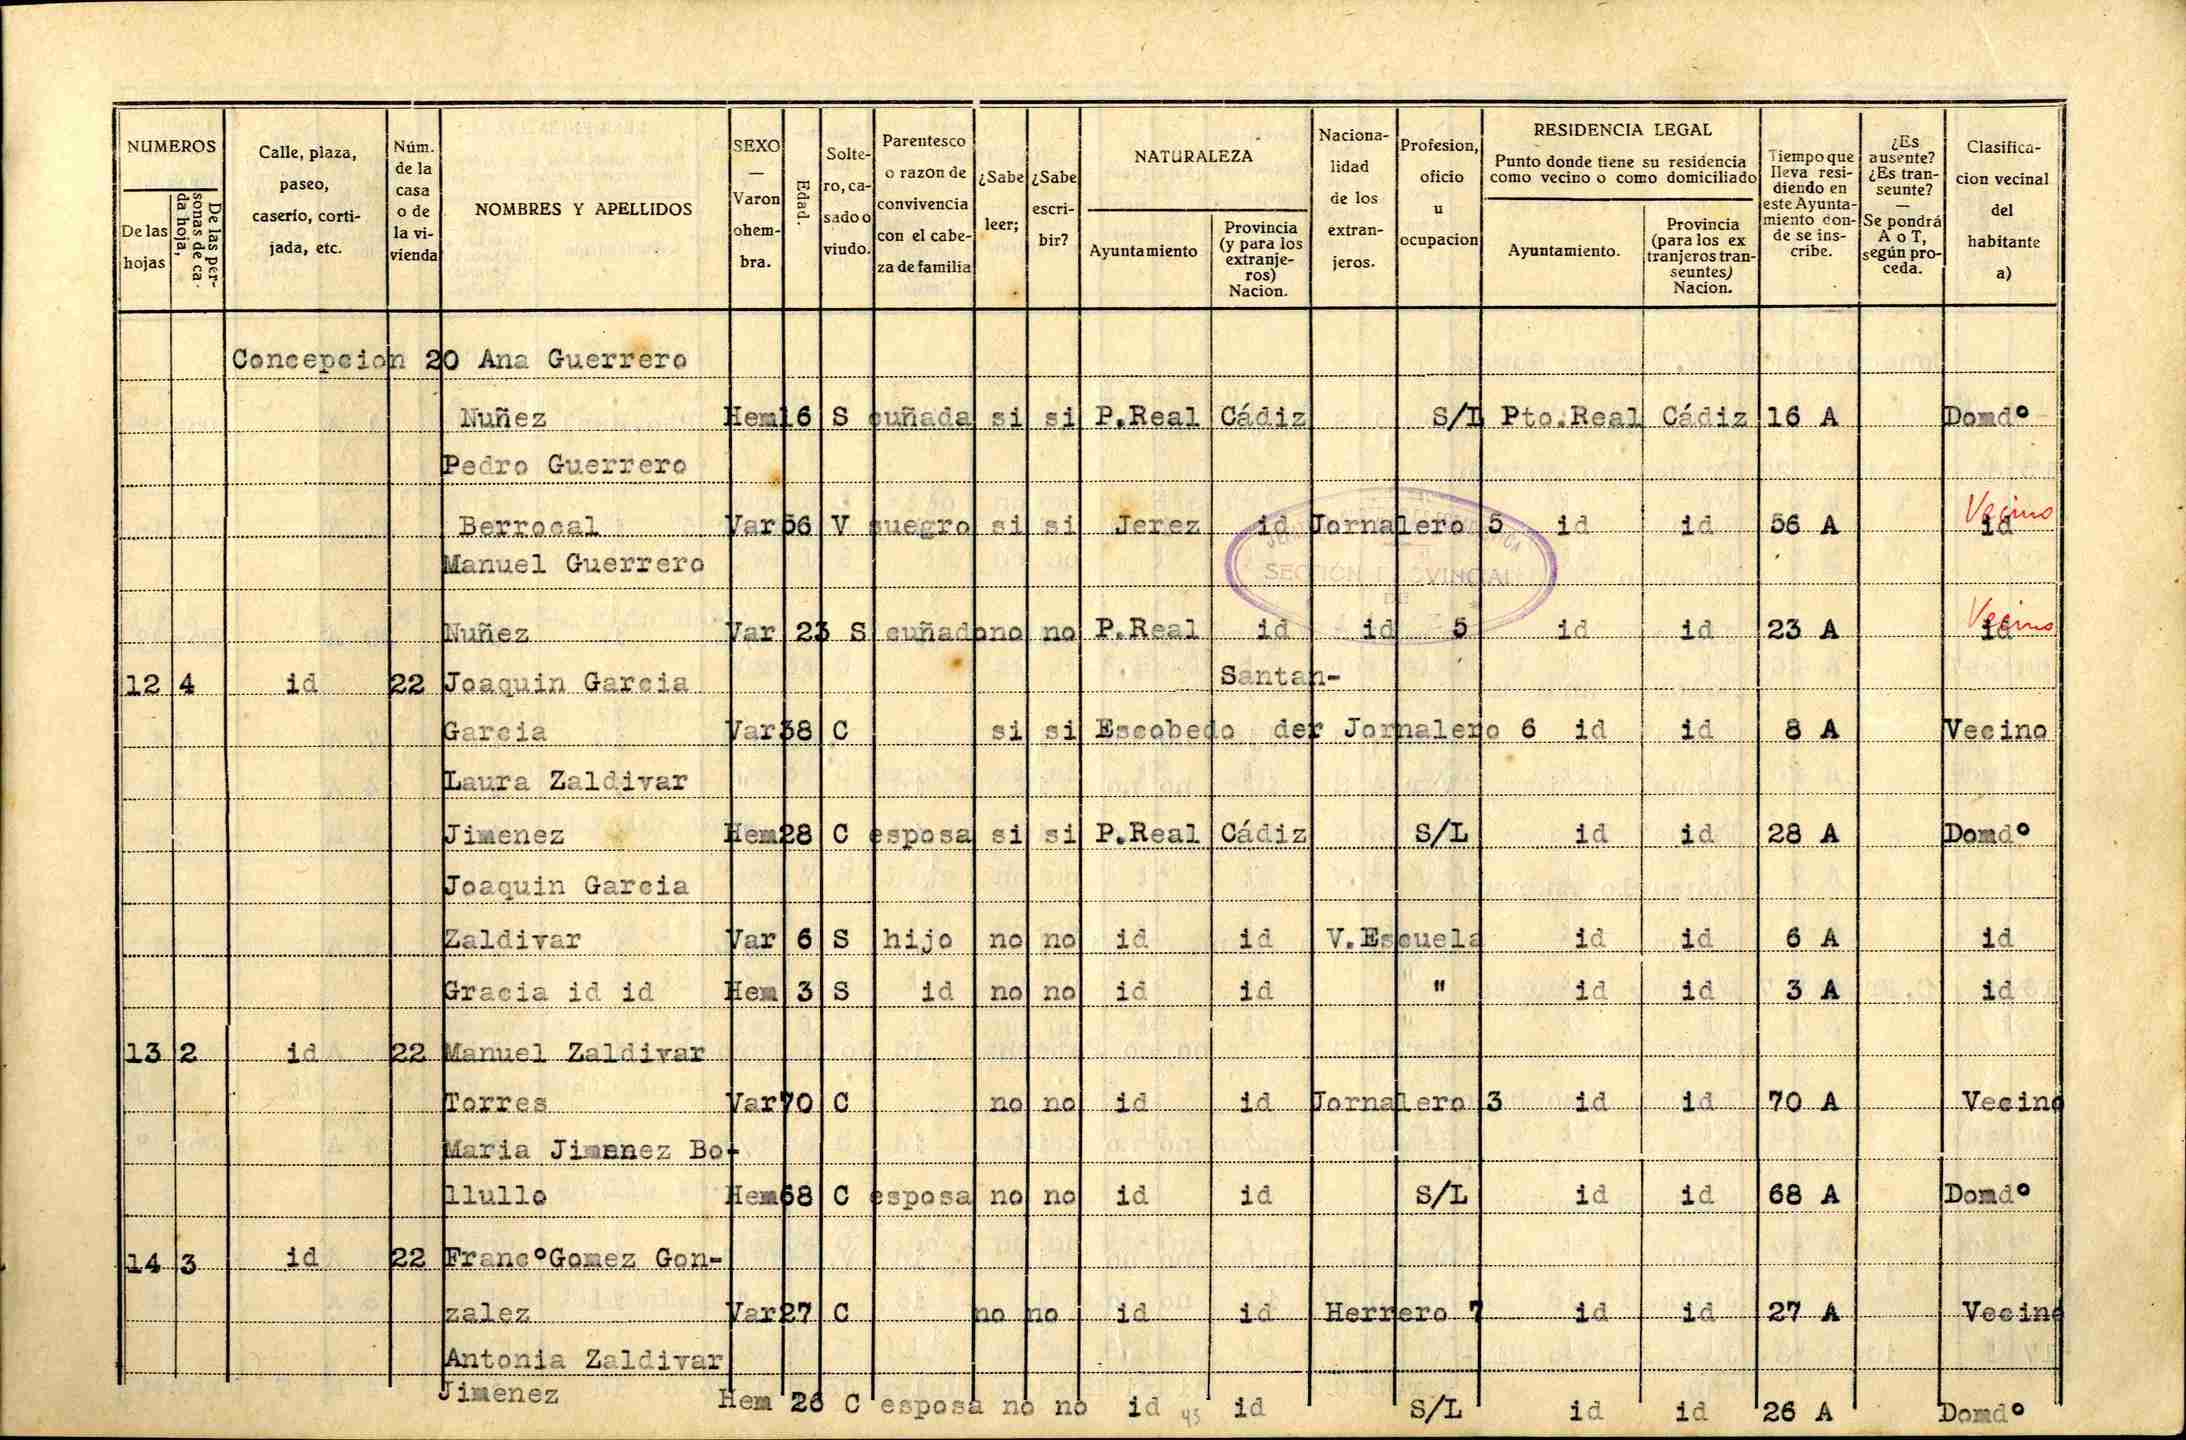 NUMEROS
De las hojas
De las personas de cada hoja,
Calle, plaza, paseo, caserío, cortijada, etc.
Núm. de la casa o de la vivienda
NOMBRES Y APELLIDOS
SEXO — Varon ohembra.
Edad.
Soltero, casado o viudo.
Parentesco o razon de convivencia con el cabeza de familia
¿Sabe leer;
¿Sabe escribir?
NATURALEZA
Ayuntamiento
Provincia (y para los extranjeros) Nacion.
Nacionalidad de los extranjeros.
Profesion, oficio u ocupacion
RESIDENCIA LEGAL
Punto donde tiene su residencia como vecino o como domiciliado
Ayuntamiento.
Provincia (para los ex tranjeros transeuntes) Nacion.
Tiempo que lleva residiendo en este Ayuntamiento donde se inscribe.
¿Es ausente? ¿Es transeunte? — Se pondrá A o T, según proceda.
Clasificacion vecinal del habitante a)
Concepcion 20 Ana Guerrero
Nuñez Hem 16 S cuñada si si P.Real Cádiz S/L Pto.Real Cádiz 16 A Domdº
Pedro Guerrero
Vecino
Berrocal Var 56 V suegro si si Jerez id Jornalero 5 id id 56 A id
Manuel Guerrero
SECCION PROVINCIAL
DE
Vecino
Nuñez Var 23 S cuñado no no P.Real id id 5 id id 23 A id
12 4 id 22 Joaquin Garcia Santan-
Garcia Var 38 C si si Escobedo der Jornalero 6 id id 8 A Vecino
Laura Zaldivar
Jimenez Hem 28 C esposa si si P.Real Cádiz S/L id id 28 A Domdº
Joaquin Garcia
Zaldivar Var 6 S hijo no no id id V.Escuela id id 6 A id
Gracia id id Hem 3 S id no no id id " id id 3 A id
13 2 id 22 Manuel Zaldivar
Torres Var 70 C no no id id Jornalero 3 id id 70 A Vecino
Maria Jimenez Bo-
llullo Hem 68 C esposa no no id id S/L id id 68 A Domdº
14 3 id 22 FrancºGomez Gon-
zalez Var 27 C no no id id Herrero 7 id id 27 A Vecino
Antonia Zaldivar
Jimenez Hem 26 C esposa no no id id S/L id id 26 A Domdº